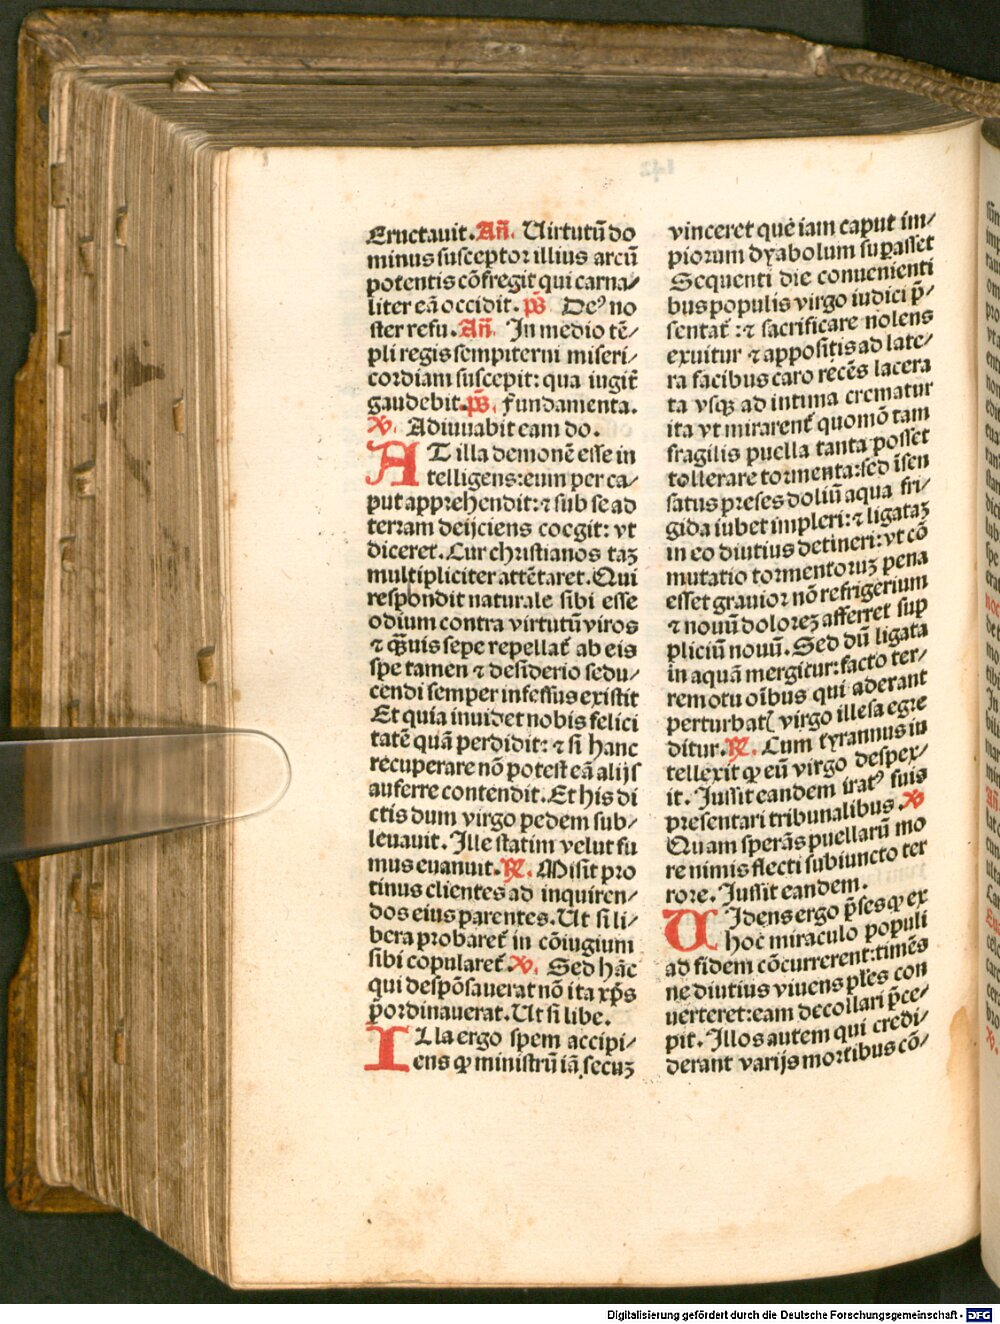 Eructauit. Añ. Uirtutū do
minus susceptor illius arcū
potentis cōfregit qui carna⸗
liter eā occidit. ps̄ Deꝰ no
ster refu. Añ. In medio tē⸗
pli regis sempiterni miseri⸗
cordiam suscepit: qua iugit᷑
gaudebit. ps̄. Fundamenta.
℣. Adiuuabit eam do.
AT illa demonē esse in
telligens: eum per ca⸗
put apprehendit: ⁊ sub se ad
terram deijciens coegit: vt
diceret. Cur christianos taꝫ
multipliciter attētaret. Qui
respondit naturale sibi esse
odium contra virtutū viros
⁊ q̄uis sepe repellat᷑ ab eis
spe tamen ⁊ desiderio sedu⸗
cendi semper infessus existit
Et quia inuidet nobis felici
tatē quā perdidit: ⁊ si hanc
recuperare nō potest eā alijs
auferre contendit. Et his di
ctis dum virgo pedem sub⸗
leuauit. Ille statim velut fu
mus euanuit. ℞. Misit pro
tinus clientes ad inquiren⸗
dos eius parentes. Ut si li⸗
bera probaret᷑ in cōiugium
sibi copularet᷑. ℣. Sed hāc
qui despōsauerat nō ita xp̄s
p̄ordinauerat. Ut si libe.
ILla ergo spem accipi⸗
ens ꝙ ministrū iā secuꝫ
vinceret que iam caput im⸗
piorum dyabolum suꝑasset
Sequenti die conuenienti
bus populis virgo iudici p̄⸗
sentat᷑: ⁊ sacrificare nolens
exuitur ⁊ appositis ad late⸗
ra facibus caro recēs lacera
ta vsqꝫ ad intima crematur
ita vt mirarent᷑ quomō tam
fragilis puella tanta posset
tollerare tormenta: sed īsen
satus preses doliū aqua fri⸗
gida iubet impleri: ⁊ ligataꝫ
in eo diutius detineri: vt cō
mutatio tormentoruꝫ pena
esset grauior nō refrigerium
⁊ nouū doloreꝫ afferret sup
pliciū nouū. Sed dū ligata
in aquā mergitur: facto ter⸗
remotu oībus qui aderant
perturbatꝭ virgo illesa egre
ditur. ℞. Cum tyrannus in
tellexit ꝙ eū virgo despex⸗
it. Jussit eandem iratꝰ suis
presentari tribunalibus. ℣
Quam sperās puellarū mo
re nimis flecti subiuncto ter
rore. Jussit eandem.
UIdens ergo p̄ses ꝙ ex
hoc miraculo populi
ad fidem cōcurrerent: timēs
ne diutius viuens ples con
uerteret: eam decollari p̄ce⸗
pit. Illos autem qui credi⸗
derant varijs mortibus cō⸗
Digitalisierung gefördert durch die Deutsche Forschungsgemeinschaft - DFG